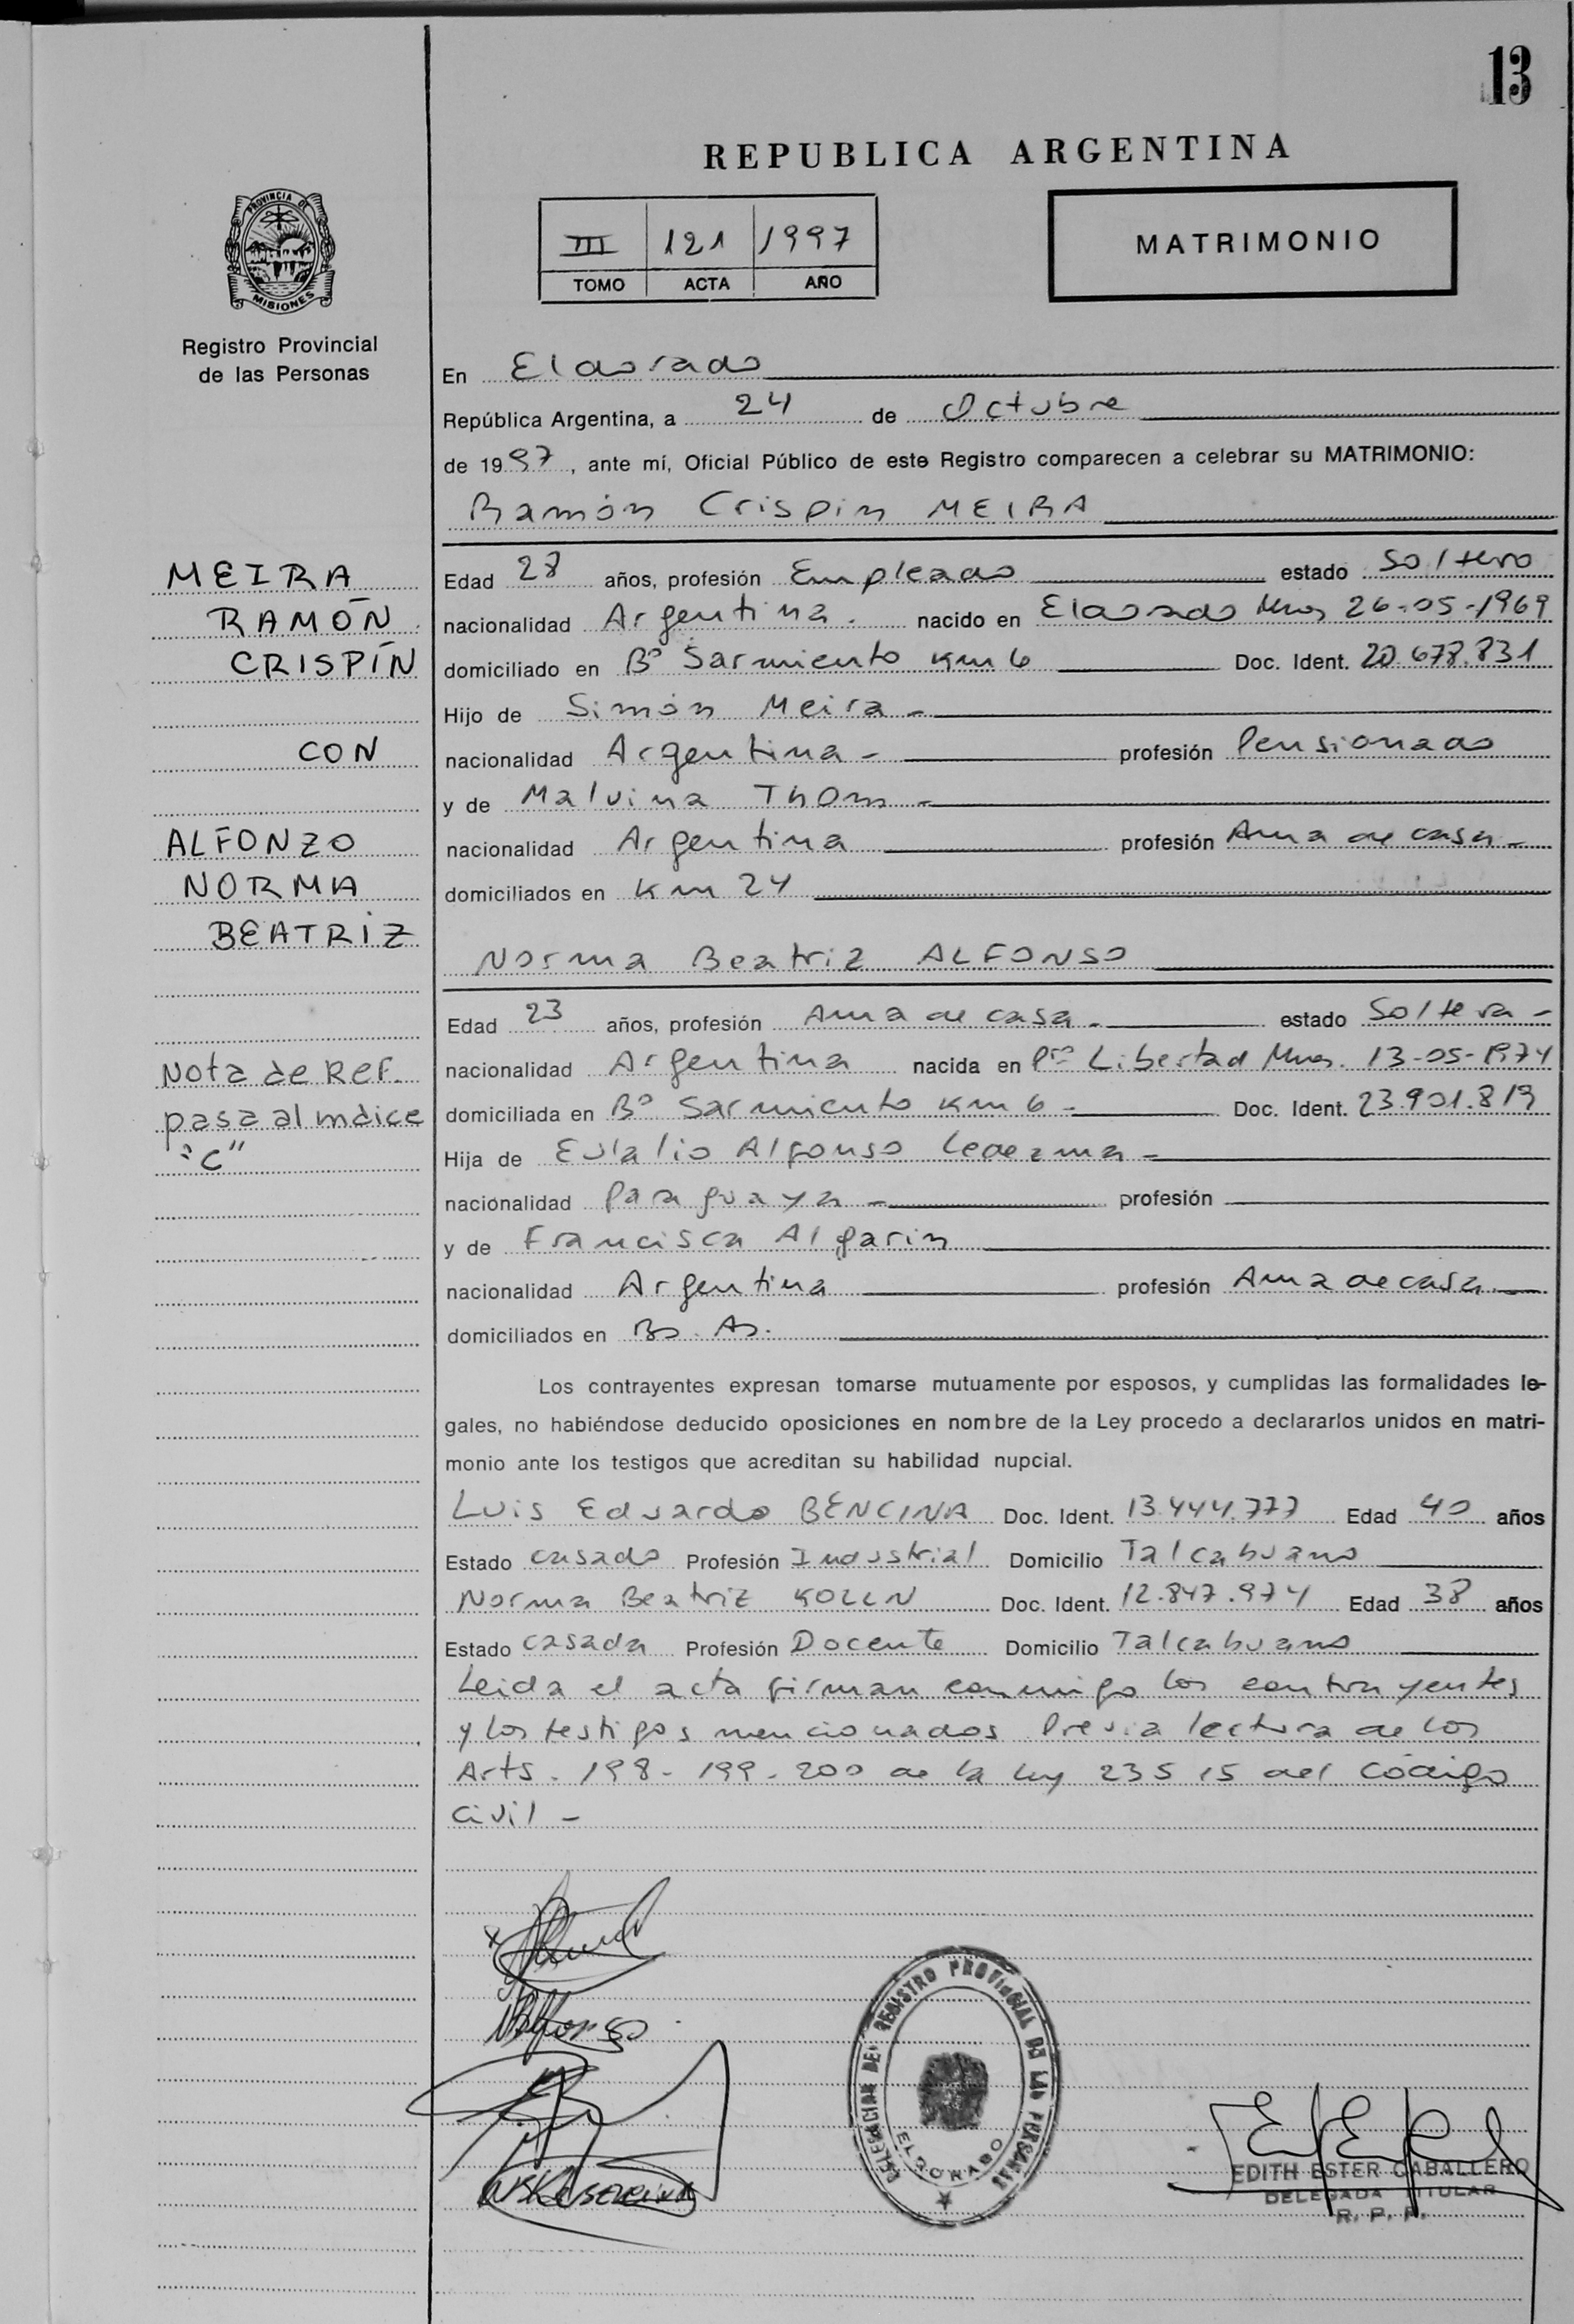 13
REPUBLICA ARGENTINA
PROVINCIA DE
MISIONES
Registro Provincial
de las Personas
III 121 1997
TOMO ACTA AÑO
MATRIMONIO
En Eldorado
República Argentina, a 24 de Octubre
de 1997, ante mí, Oficial Público de este Registro comparecen a celebrar su MATRIMONIO:
Ramón Crispin MEIRA
MEIRA
RAMÓN
CRISPÍN
CON
ALFONZO
NORMA
BEATRIZ
Nota de Ref.
pasa al indice
"C"
Edad 28 años, profesión Empleado estado Soltero
nacionalidad Argentina. nacido en Eldorado Mnes 26-05-1969
domiciliado en Bº Sarmiento Km 6 Doc. Ident. 20.678.831
Hijo de Simón Meira -
nacionalidad Argentina - profesión Pensionado
y de Malvina Thom -
nacionalidad Argentina profesión Ama de casa -
domiciliados en Km 24
Norma Beatriz ALFONSO
Edad 23 años, profesión Ama de casa - estado Soltera -
nacionalidad Argentina nacida en Pto Libertad Mnes. 13-05-1974
domiciliada en Bº Sarmiento Km 6 - Doc. Ident. 23.901.819
Hija de Eulalio Alfonso Ledezma -
nacionalidad Paraguaya - profesión
y de Francisca Algarin
nacionalidad Argentina profesión Ama de casa
domiciliados en Bs. As.
Los contrayentes expresan tomarse mutuamente por esposos, y cumplidas las formalidades le-
gales, no habiéndose deducido oposiciones en nombre de la Ley procedo a declararlos unidos en matri-
monio ante los testigos que acreditan su habilidad nupcial.
Luis Eduardo BENCINA Doc. Ident. 13.444.777 Edad 40 años
Estado casado Profesión Industrial Domicilio Talcahuano
Norma Beatriz KOLLN Doc. Ident. 12.847.974 Edad 38 años
Estado casada Profesión Docente Domicilio Talcahuano
Leida el acta firman conmigo los contrayentes
y los testigos mencionados Previa lectura de los
Arts. 198-199-200 de la ley 23515 del Código
civil -
NBAlfonso
DELEGACION DEL REGISTRO PROVINCIAL DE LAS PERSONAS
ELDORADO
EDITH ESTER CABALLERO
DELEGADA TITULAR
R. P. P.